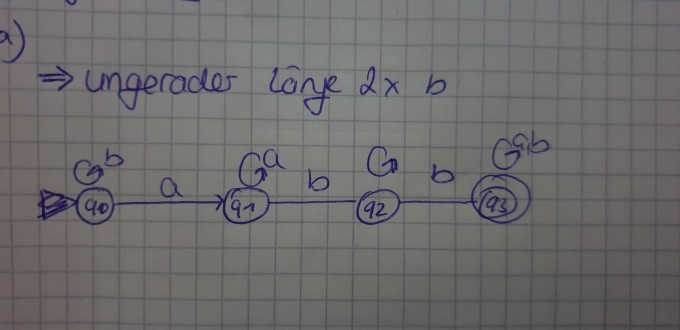 a)
⇒ ungerader Länge 2x b
b a a,b
a b b
q0 q1 q2 q3